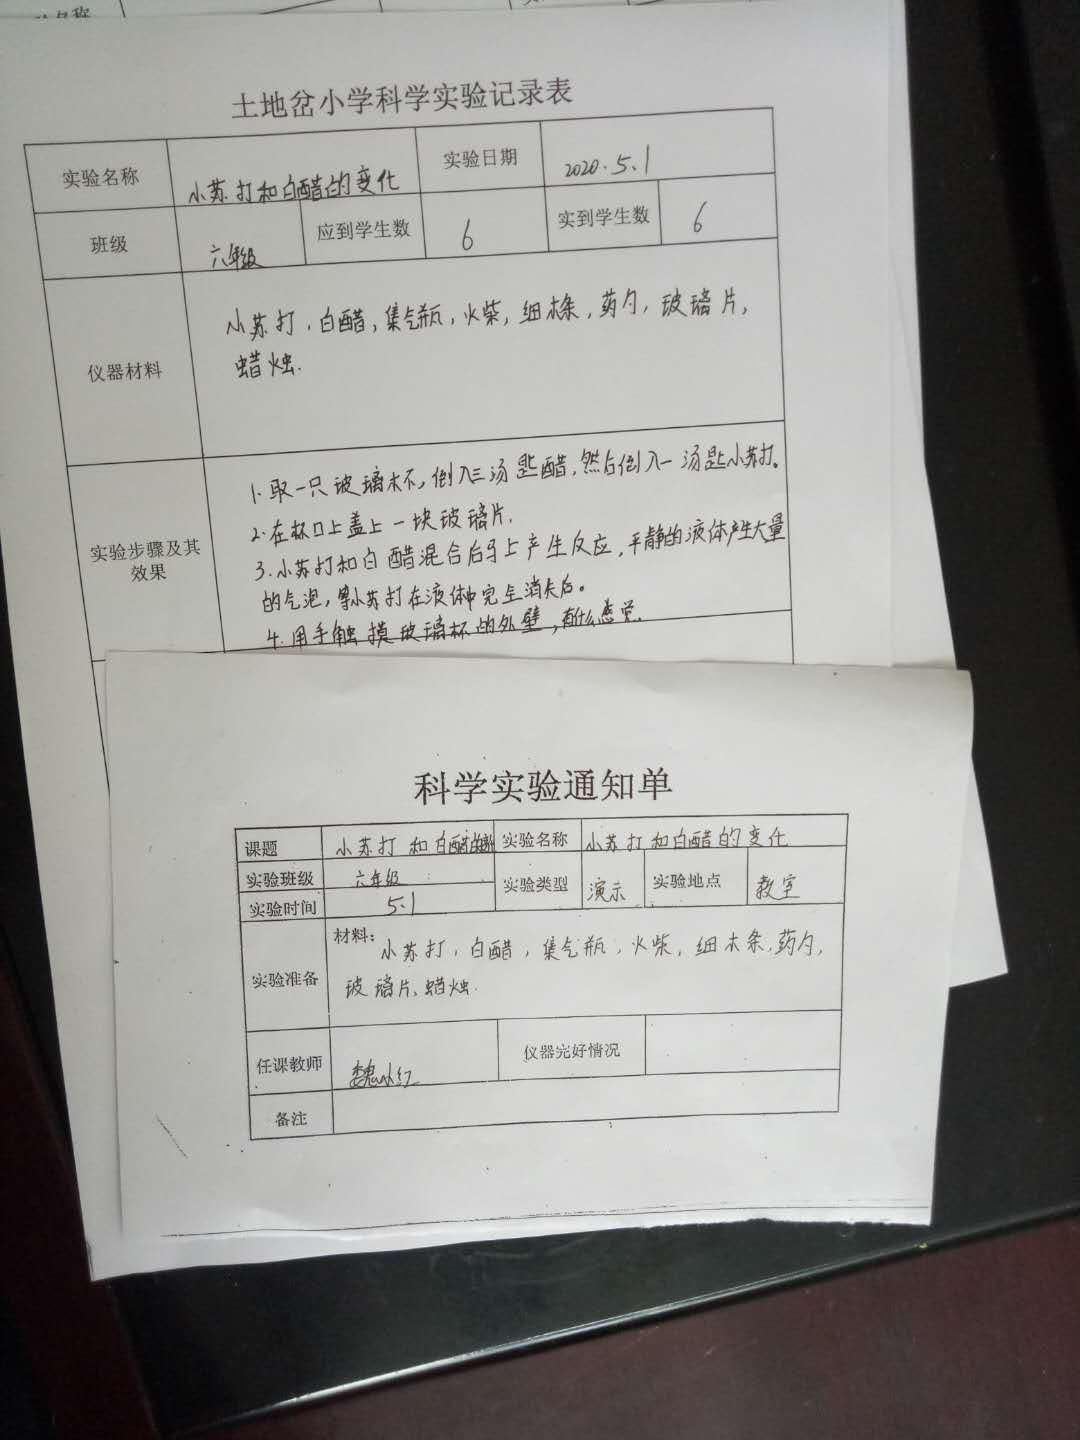 土地岔小学科学实验记录表
实验名称 小苏打和白醋的变化 实验日期 2020.5.1
班级 六年级 应到学生数 6 实到学生数 6
仪器材料 小苏打,白醋,集气瓶,火柴,细木条,药勺,玻璃片,
蜡烛.
实验步骤及其
效果
1.取一只玻璃杯,倒入三汤匙醋,然后倒入一汤匙小苏打。
2.在杯口上盖上一块玻璃片.
3.小苏打和白醋混合后马上产生反应,平静的液体产生大量
的气泡,等小苏打在液体中完全消失后。
4.用手触摸玻璃杯的外壁,有什么感觉.
科学实验通知单
课题 小苏打和白醋的变化 实验名称 小苏打和白醋的变化
实验班级 六年级 实验类型 演示 实验地点 教室
实验时间 5.1
实验准备 材料:小苏打,白醋,集气瓶,火柴,细木条,药勺,
玻璃片,蜡烛.
任课教师 魏小红 仪器完好情况
备注